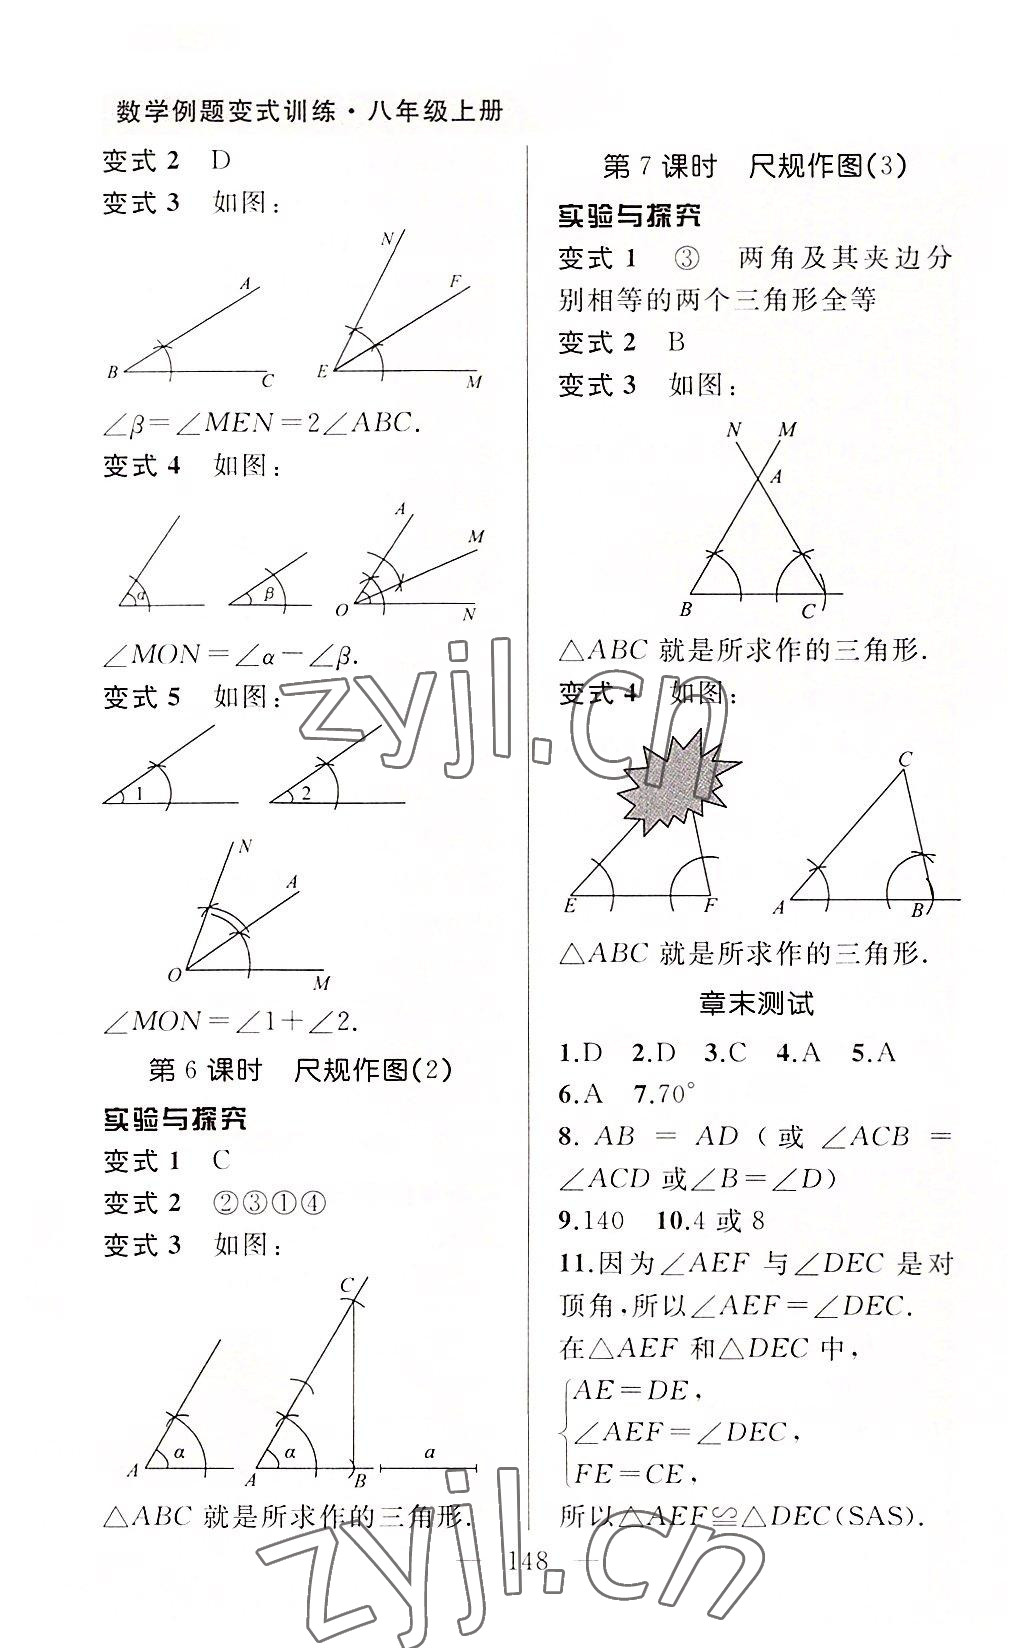 数学例题变式训练·八年级上册
变式2 D
变式3 如图:
N
A
F
B
C
E
M
∠β=∠MEN=2∠ABC.
变式4 如图:
A
M
α
β
O
N
∠MON=∠α-∠β.
变式5 如图:
1
2
N
A
O
M
∠MON=∠1+∠2.
第6课时 尺规作图(2)
实验与探究
变式1 C
变式2 ②③①④
变式3 如图:
C
α
α
a
A
A
B
△ABC就是所求作的三角形.
第7课时 尺规作图(3)
实验与探究
变式1 ③ 两角及其夹边分
别相等的两个三角形全等
变式2 B
变式3 如图:
N M
A
B
C
△ABC就是所求作的三角形.
变式4 如图:
C
E
F
A
B
△ABC就是所求作的三角形.
章末测试
1.D 2.D 3.C 4.A 5.A
6.A 7.70°
8. AB = AD(或∠ACB =
∠ACD或∠B=∠D)
9.140 10.4或8
11.因为∠AEF与∠DEC是对
顶角,所以∠AEF=∠DEC.
在△AEF和△DEC中,
AE=DE,
∠AEF=∠DEC,
FE=CE,
所以△AEF≌△DEC(SAS).
148
zyjl.cn
zyjl.cn